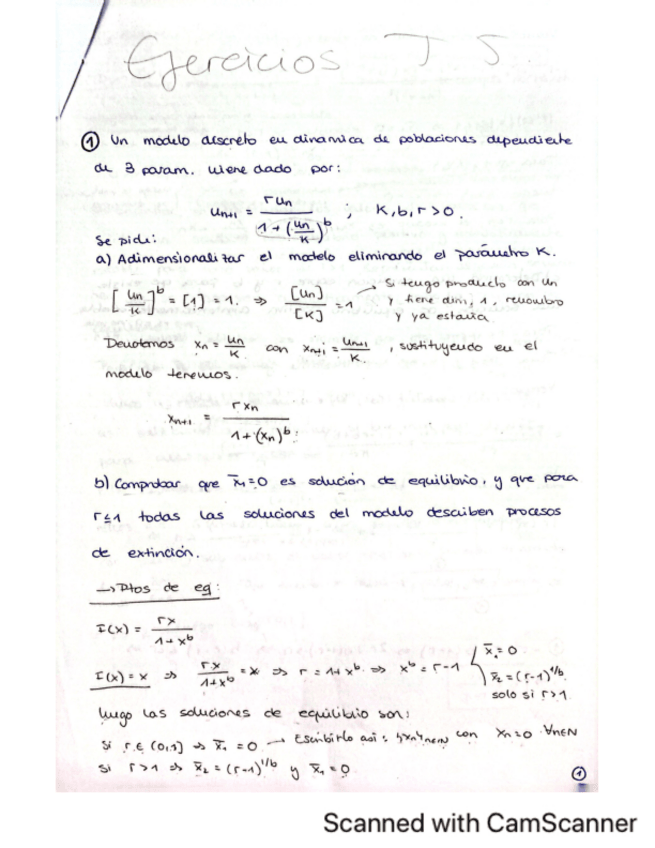 Ejercicios T 5.
① Un modelo discreto en dinamica de poblaciones dependiente
de 3 param. viene dado por:
u_{n+1} = \frac{r u_n}{1 + (\frac{u_n}{K})^b} ; K, b, r > 0.
Se pide:
a) Adimensionalizar el modelo eliminando el parámetro K.
[\frac{u_n}{K}]^b = [1] = 1. ⇒ \frac{[u_n]}{[K]} = 1 → Si tengo producto con un
y tiene dim, 1, renombro
y ya estaría
Denotemos x_n = \frac{u_n}{K} con x_{n+1} = \frac{u_{n+1}}{K}, sustituyendo en el
modelo tenemos.
x_{n+1} = \frac{r x_n}{1 + (x_n)^b}.
b) Comprobar que x̄_1 = 0 es solución de equilibrio, y que para
r ≤ 1 todas las soluciones del modelo describen procesos
de extinción.
→ Ptos de eq:
I(x) = \frac{rx}{1 + x^b}
I(x) = x ⇒ \frac{rx}{1 + x^b} = x ⇒ r = 1 + x^b ⇒ x^b = r - 1 { x̄_1 = 0
x̄_2 = (r-1)^{1/b}
solo si r > 1
luego las soluciones de equilibrio son:
Si r ∈ (0,1] ⇒ x̄_1 = 0 → Escribirlo así: {x_n}_{n∈N} con x_n = 0 ∀n∈N
Si r > 1 ⇒ x̄_2 = (r-1)^{1/b} y x̄_1 = 0
①
Scanned with CamScanner